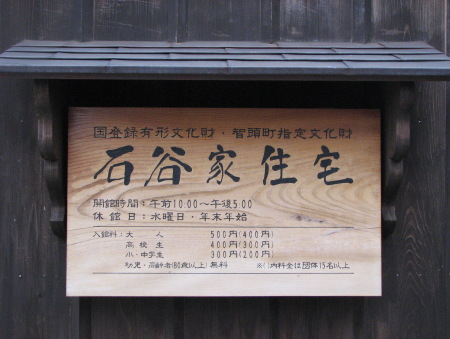 国登録有形文化財・智頭町指定文化財
石谷家住宅
開館時間：午前10:00～午後5:00
休館日：水曜日・年末年始
入館料：大人 500円(400円)
高校生 400円(300円)
小・中学生 300円(200円)
幼児・高齢者(80歳以上)無料 ※( )内料金は団体15名以上